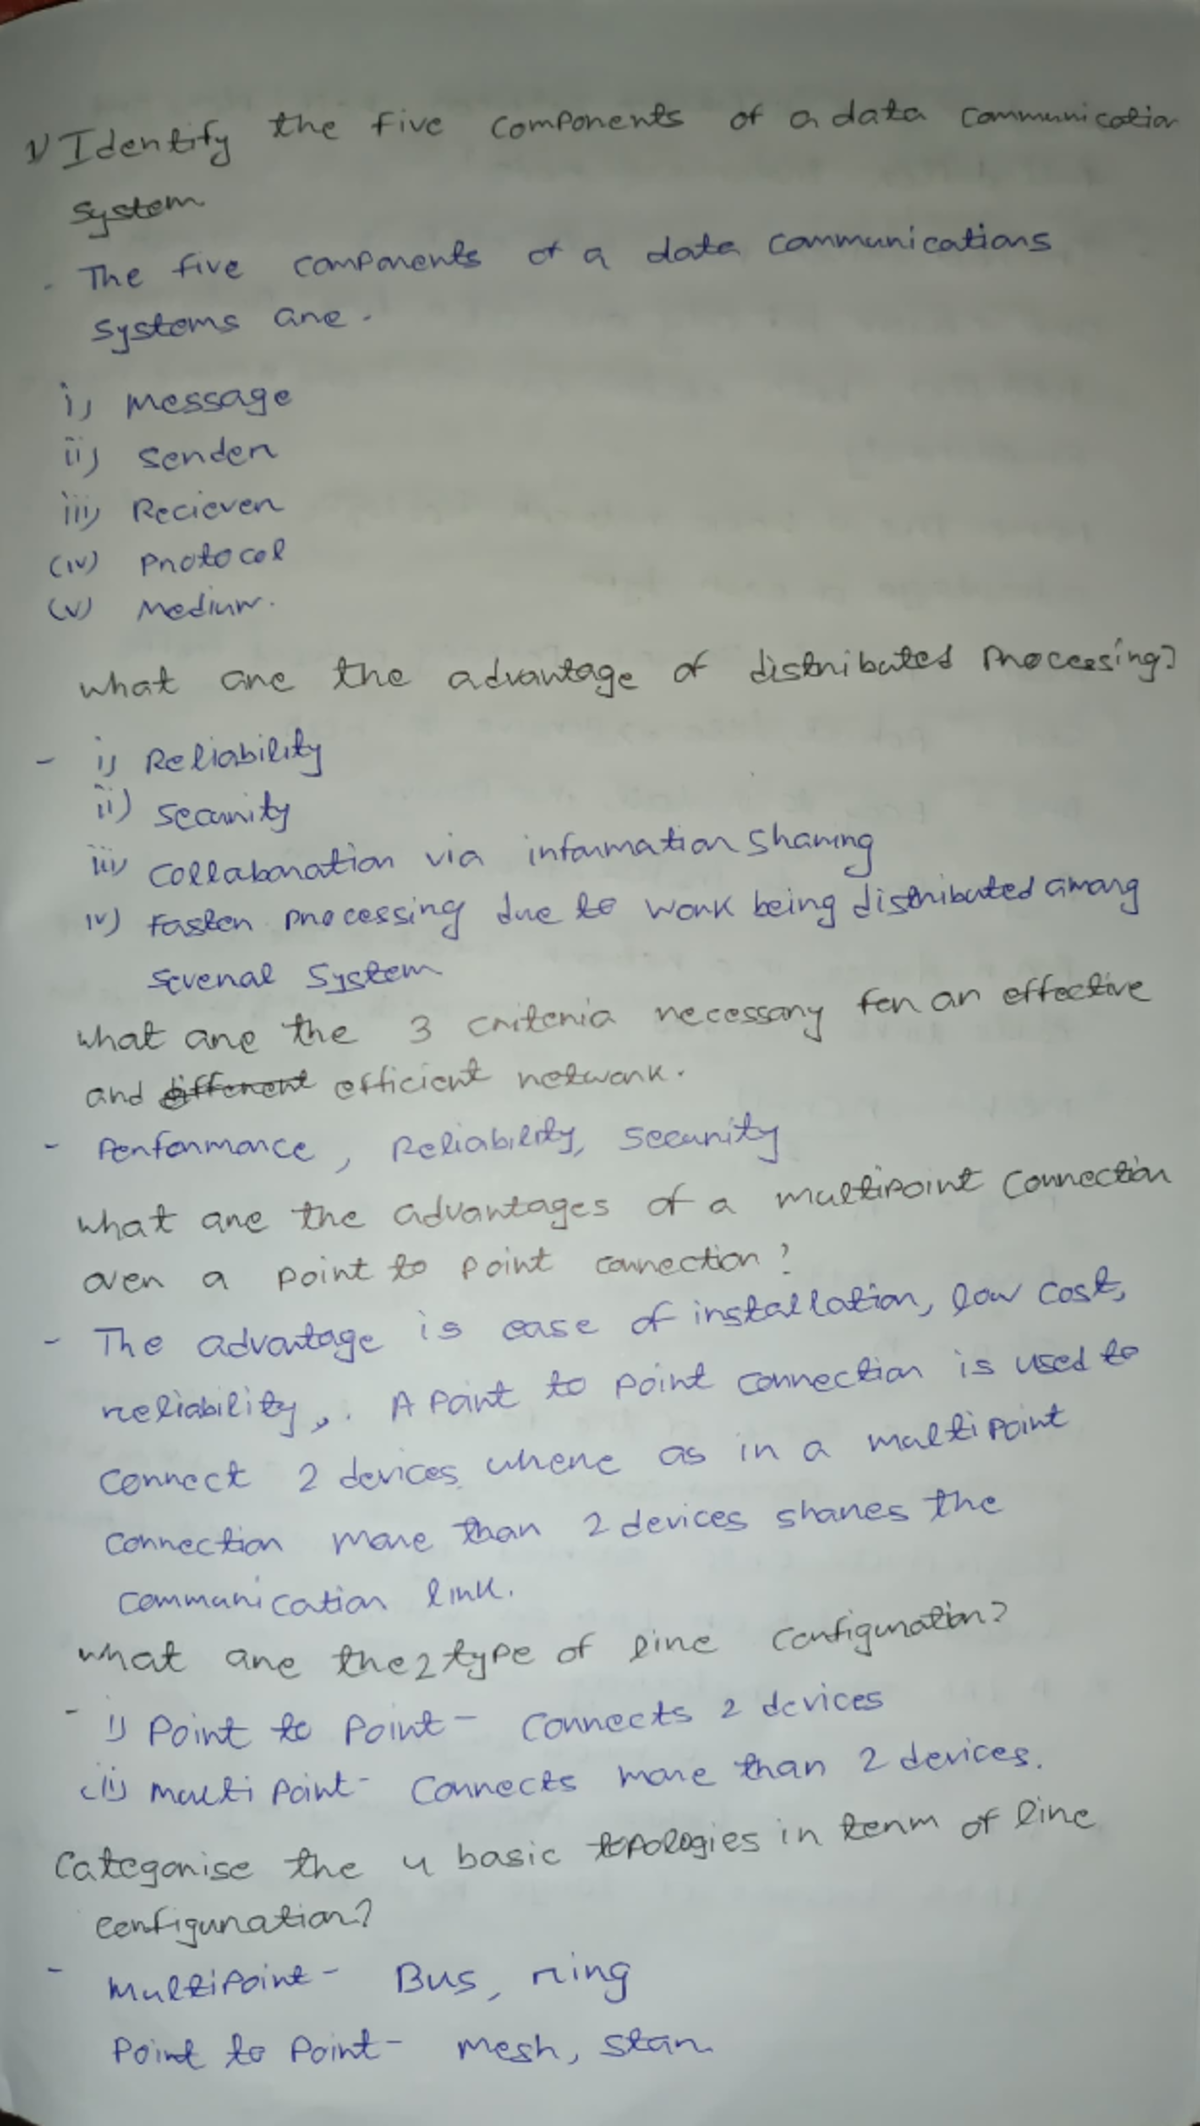 1) Identify the five components of a data communication
system
- The five components of a data communications
systems are.
i) message
ii) sender
iii) Reciever
(iv) Protocol
(v) Medium.
what are the advantage of distributed processing?
- i) Reliability
ii) security
iii) collaboration via information sharing
iv) faster processing due to work being distributed among
several system
what are the 3 criteria necessary for an effective
and different efficient network.
- Performance, Reliability, security
what are the advantages of a multipoint connection
over a point to point connection?
- The advantage is ease of installation, low cost,
reliability,. A point to point connection is used to
connect 2 devices where as in a multipoint
connection more than 2 devices shares the
communication link.
what are the 2 type of line configuration?
- i) point to point - connects 2 devices
(ii) multi point - connects more than 2 devices.
Categorise the 4 basic topologies in term of line
configuration?
- multipoint - Bus, ring
Point to Point - mesh, star